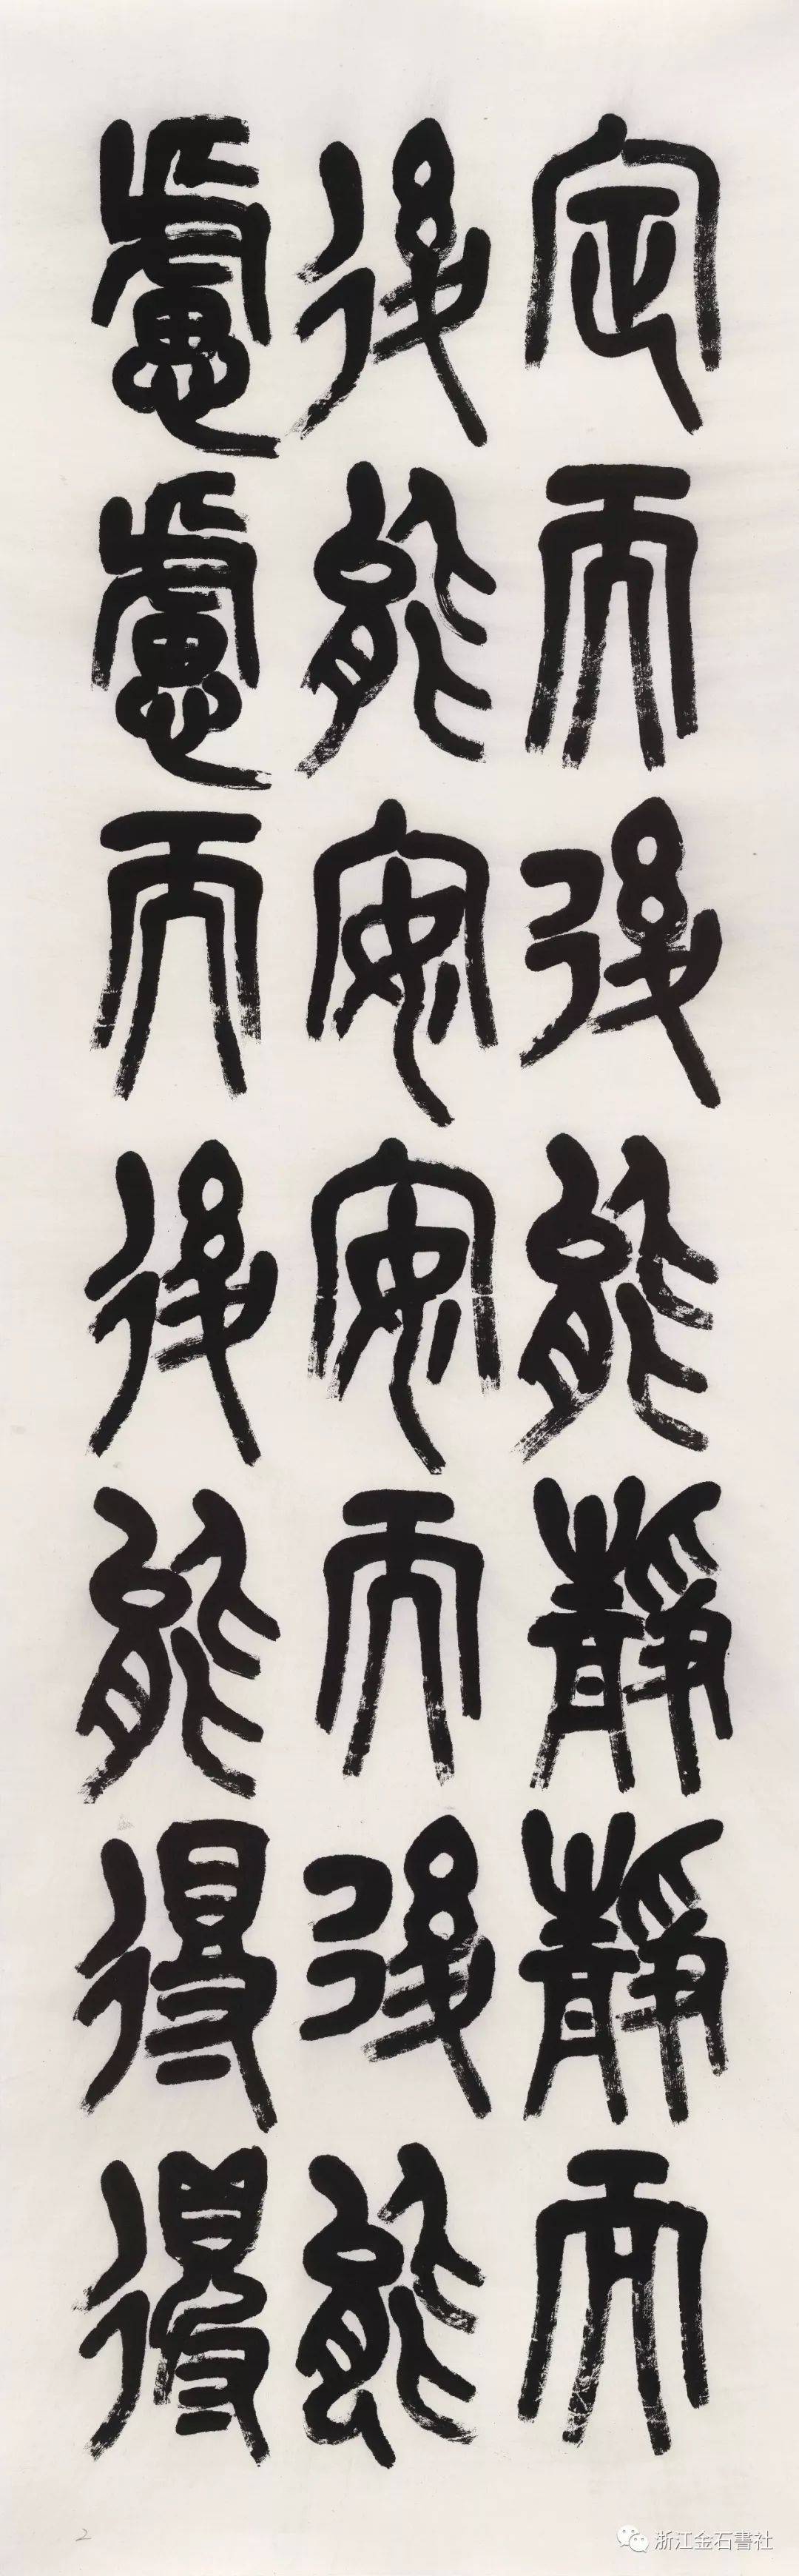 定而後能靜靜而
後能安安而後能
慮慮而後能得得
2
浙江金石書社